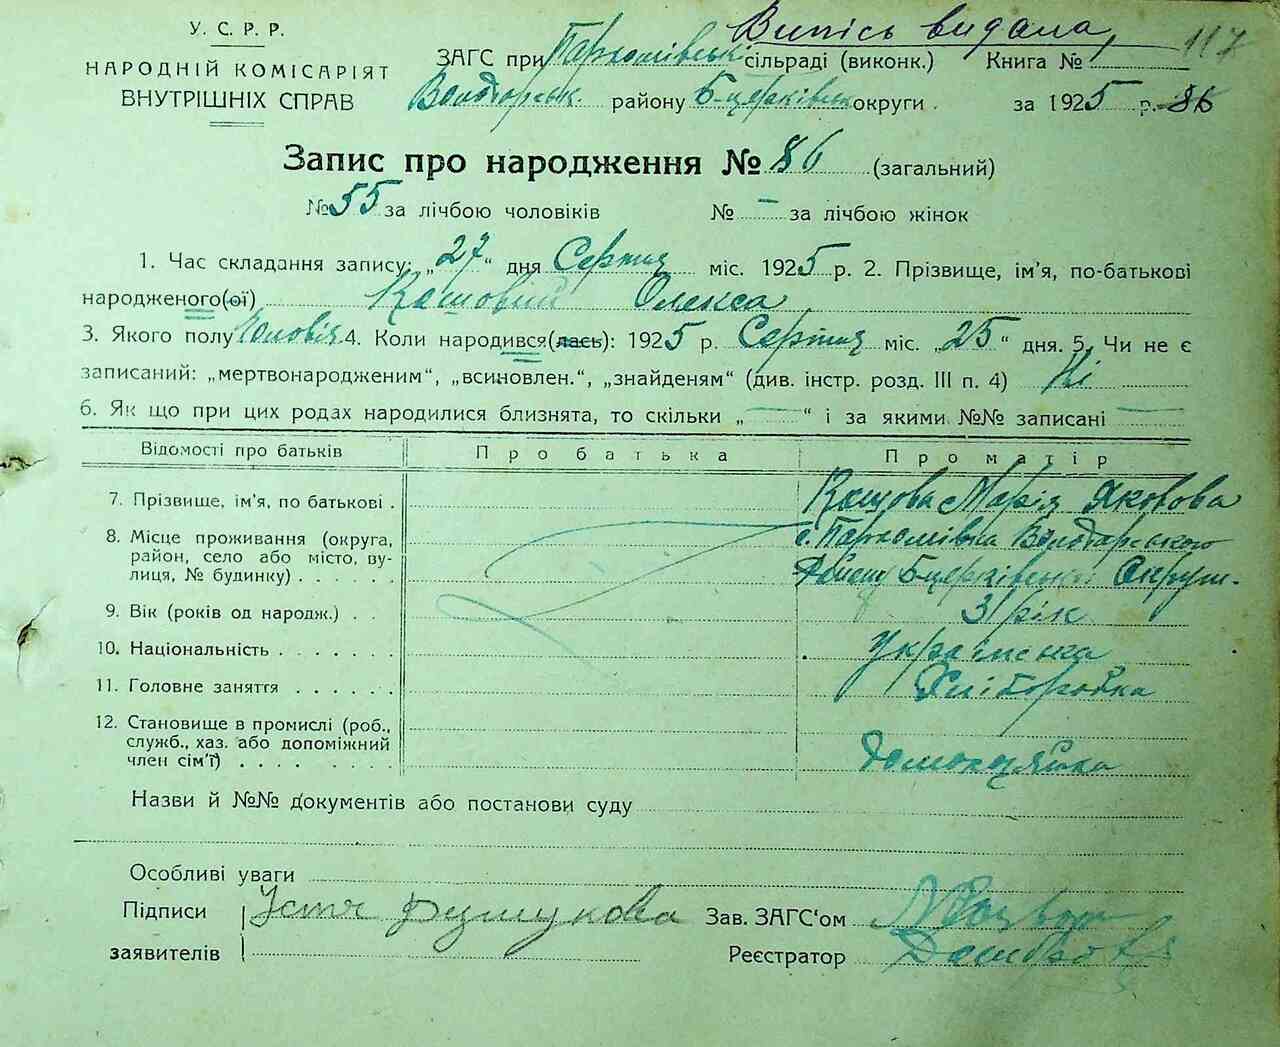 Випись видана, 117
У. С. Р. Р.
НАРОДНІЙ КОМІСАРІЯТ
ВНУТРІШНІХ СПРАВ
ЗАГС при Пархомівській сільраді (виконк.) Книга №
Володарськ. району Б-церківськ округи за 1925 р. 86
Запис про народження № 86 (загальний)
№ 55 за лічбою чоловіків № – за лічбою жінок
1. Час складання запису: „27“ дня Серпня міс. 1925 р. 2. Прізвище, ім'я, по-батькові
народженого(ої) Олекса
3. Якого полу Чоловіч 4. Коли народився(лась): 1925 р. Серпня міс. „25“ дня. 5. Чи не є
записаний: „мертвонародженим“, „всиновлен.“, „знайденям“ (див. інстр. розд. III п. 4) Ні
6. Як що при цих родах народилися близнята, то скільки „—“ і за якими №№ записані —
Відомості про батьків Про батька Про матір
7. Прізвище, ім'я, по батькові . Марія Яковова
8. Місце проживання (округа, район, село або місто, вулиця, № будинку) . . . . . с. Пархомівка Володарського
Району Б-церківської Округи.
9. Вік (років од народж.) . . 31 рік
10. Національність . . . . . . . Українка
11. Головне заняття . . . . . . Хліборобка
12. Становище в промислі (роб., служб., хаз. або допоміжний член сім'ї) . . . . . . Домохазяйка
Назви й №№ документів або постанови суду
Особливі уваги
Підписи Устя Зав. ЗАГС'ом
заявителів Реєстратор